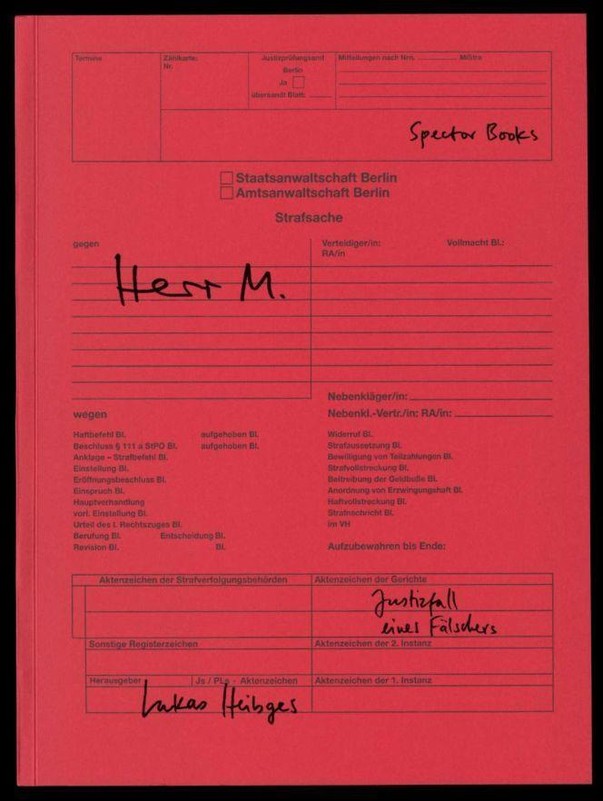 Termine
Zählkarte: Nr.
Justizprüfungsamt
Berlin
Ja
übersandt Blatt:
Mitteilungen nach Nrn. MiStra
Spector Books
Staatsanwaltschaft Berlin
Amtsanwaltschaft Berlin
Strafsache
gegen
Herr M.
Verteidiger/in: Vollmacht Bl.:
RA/in
Nebenkläger/in:
Nebenkl.-Vertr./in; RA/in:
wegen
Haftbefehl Bl. aufgehoben Bl.
Beschluss § 111 a StPO Bl. aufgehoben Bl.
Anklage – Strafbefehl Bl.
Einstellung Bl.
Eröffnungsbeschluss Bl.
Einspruch Bl.
Hauptverhandlung
vorl. Einstellung Bl.
Urteil des I. Rechtszuges Bl.
Berufung Bl. Entscheidung Bl.
Revision Bl. Bl.
Widerruf Bl.
Strafaussetzung Bl.
Bewilligung von Teilzahlungen Bl.
Strafvollstreckung Bl.
Beitreibung der Geldbuße Bl.
Anordnung von Erzwingungshaft Bl.
Haftvollstreckung Bl.
Strafnachricht Bl.
im VH
Aufzubewahren bis Ende:
Aktenzeichen der Strafverfolgungsbehörden
Aktenzeichen der Gerichte
Justizfall
eines Fälschers
Sonstige Registerzeichen
Aktenzeichen der 2. Instanz
Herausgeber Js / PLs - Aktenzeichen
Aktenzeichen der 1. Instanz
Lukas Heibges